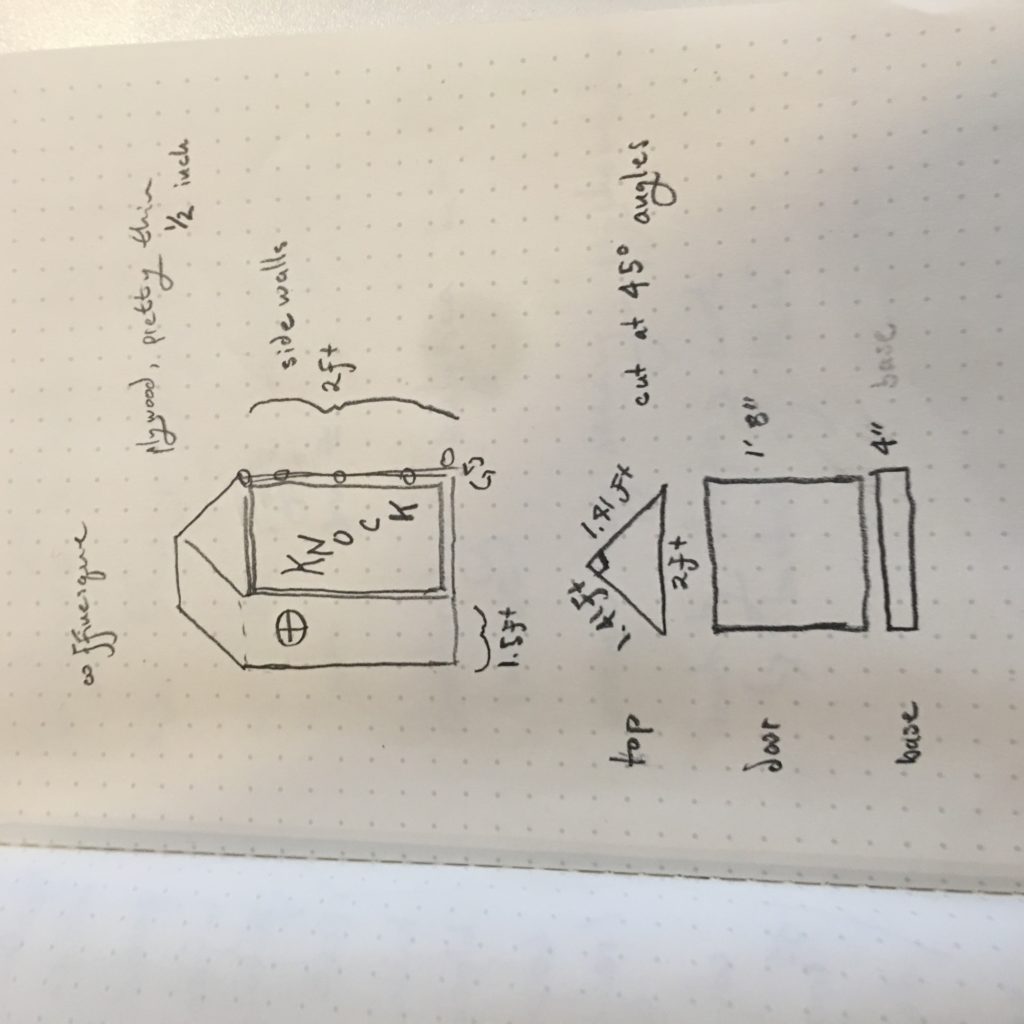 coffinesque
plywood, pretty thin
1/2 inch
side walls
2ft
KNOCK
1.5ft
top
1.41ft
1.41ft
2ft
cut at 45° angles
door
1' 8"
base
4"
base